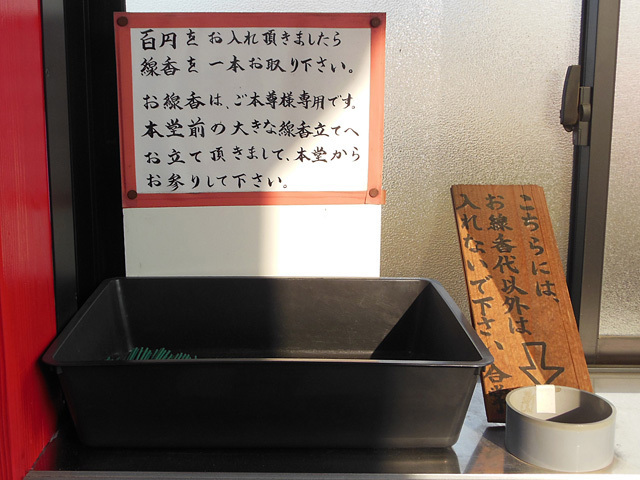 百円をお入れ頂きましたら
線香を一本お取り下さい。
お線香は、ご本尊様専用です。
本堂前の大きな線香立てへ
お立て頂きまして、本堂から
お参りして下さい。
こちらには、
お線香代以外は
入れないで下さい、合掌